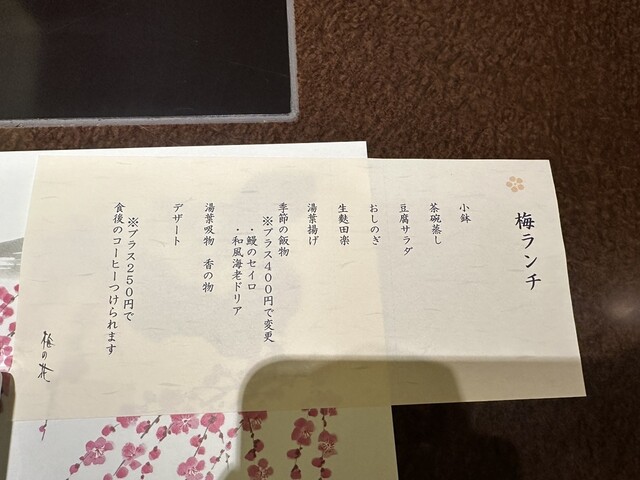 梅ランチ
小鉢
茶碗蒸し
豆腐サラダ
おしのぎ
生麩田楽
湯葉揚げ
季節の飯物
※プラス400円で変更
・鰻のセイロ
・和風海老ドリア
湯葉吸物　香の物
デザート
※プラス250円で
食後のコーヒーつけられます
梅の花